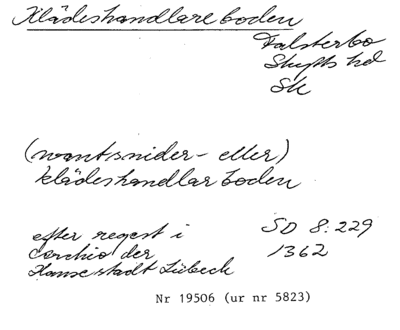 Klädeshandlareboden
Falsterbo
Skytts hd
Sk
(wantsnider- eller)
klädeshandlarboden
efter regest i SD 8:229
Archiv der 1362
Hansestadt Lübeck
Nr 19506 (ur nr 5823)